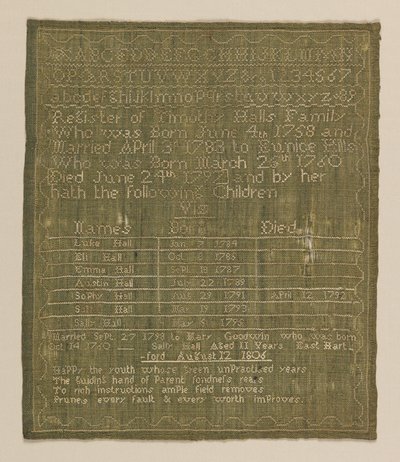 OPQRSTUVWXYZ& 1234567
abcdefghijklmnopqrstuvwxyz&
Register of Timothy Halls Family
Who was Born June 4th 1758 and
Married April 3d 1783 to Eunice Hills
Who was Born March 25th 1760
Died June 24th 1797 and by her
hath the following Children
Viz
Names Born Died
Luke Hall Jan 7 1784
Eli Hall Oct 1785
Emma Hall Sept 19 1787
Austin Hall July 22 1789
Sophy Hall Aug 29 1791 April 12 1792
Hall May
Sally Hall May 6 1795
Married Sept 27 1798 to Mary Goodwin who was born
Oct 14 1760 Sally Hall Aged 11 Years East Hart
-ford August 12 1806
Happy the youth whose green unpractised years
The guiding hand of Parent fondness rears
To rich instructions ample field removes
Prunes every fault & every worth improves.